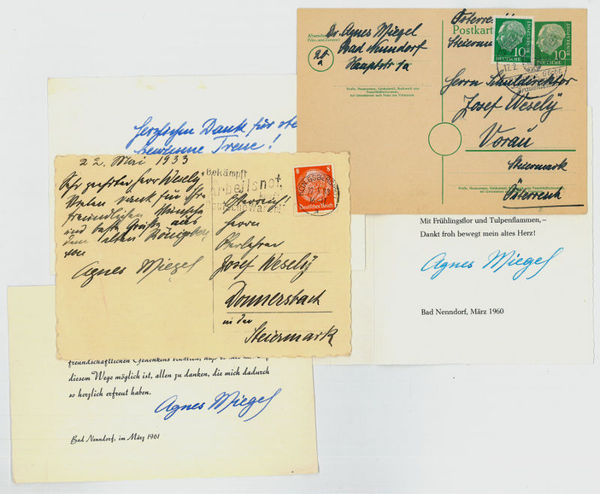 Dr. Agnes Miegel
Bad Nenndorf
Hauptstr 1a
Österreich
Steiermark
Postkarte
10
10
DEUTSCHE
Herrn Schuldirektor
Josef Wesely
Vorau
Steiermark
Österreich
Herzlichen Dank für
Treue!
22. Mai 1933
Sehr geehrter Herr Wesely
Vielen Dank für Ihre
freundlichen
und beste Grüße aus
dem alten
Agnes Miegel
Bekämpft
Arbeitsnot,
8
Deutsches Reich
Österreich!
Herrn
Oberlehrer
Josef Wesely
Donnersbach
in der
Steiermark
Mit Frühlingsflor und Tulpenflammen,–
Dankt froh bewegt mein altes Herz!
Agnes Miegel
Bad Nenndorf, März 1960
freundschaftlichen Gedenkens
diesem Wege möglich ist, allen zu danken, die mich dadurch
so herzlich erfreut haben.
Agnes Miegel
Bad Nenndorf, im März 1961